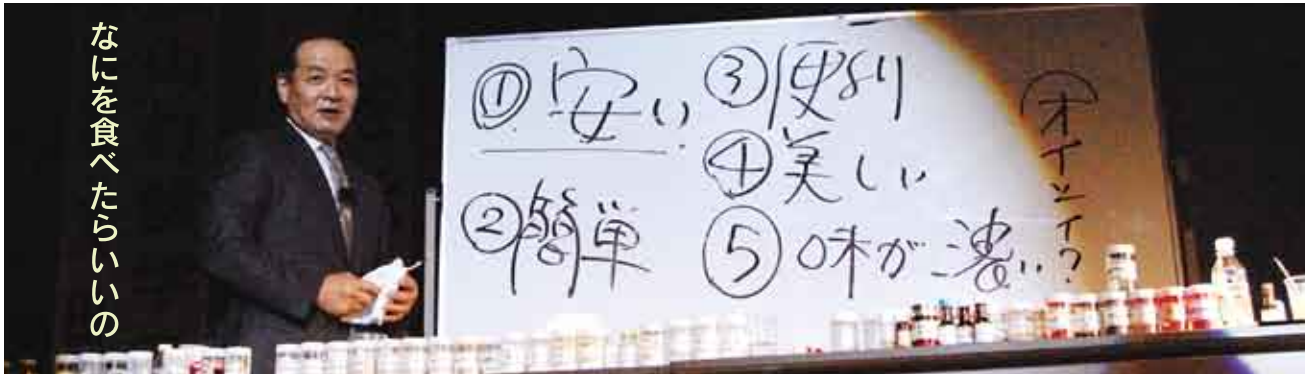 なにを食べたらいいの
① 安い
② 簡単
③ 便利
④ 美しい
⑤ 味が濃い
オイシイ?